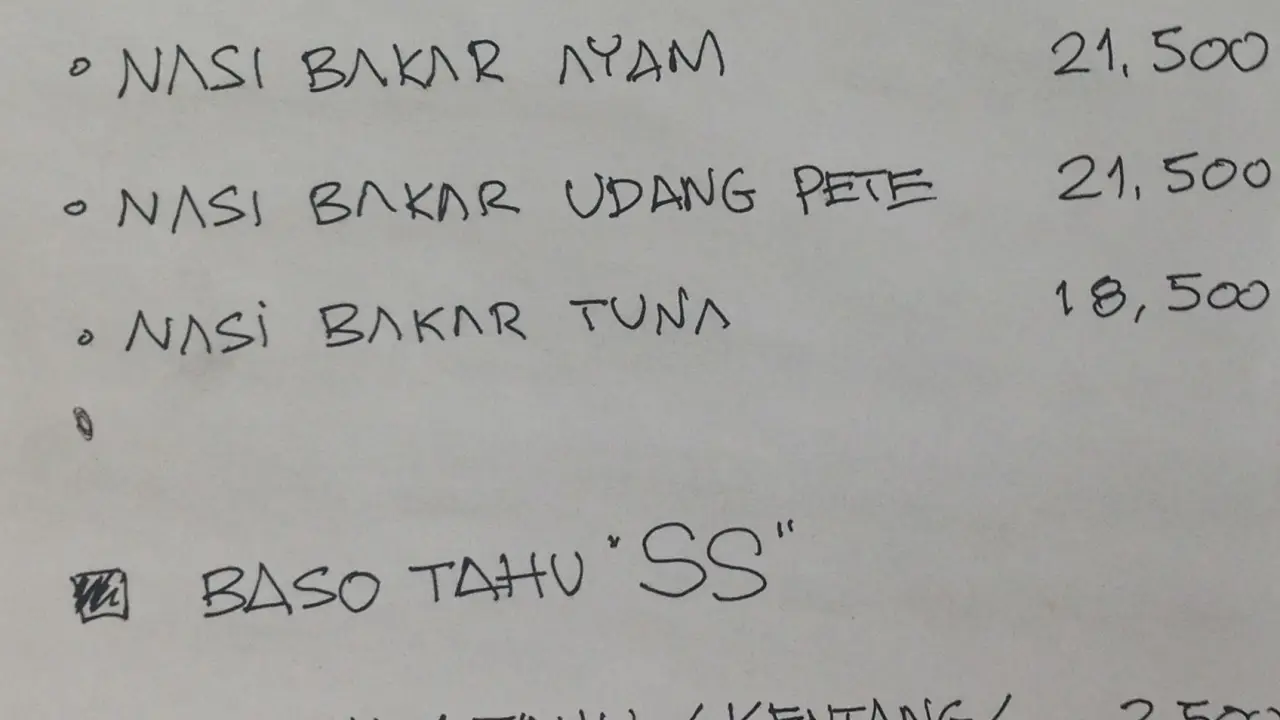 NASI BAKAR AYAM 21,500
NASI BAKAR UDANG PETE 21,500
NASI BAKAR TUNA 18,500
BASO TAHU "SS"
/ KENTANG /